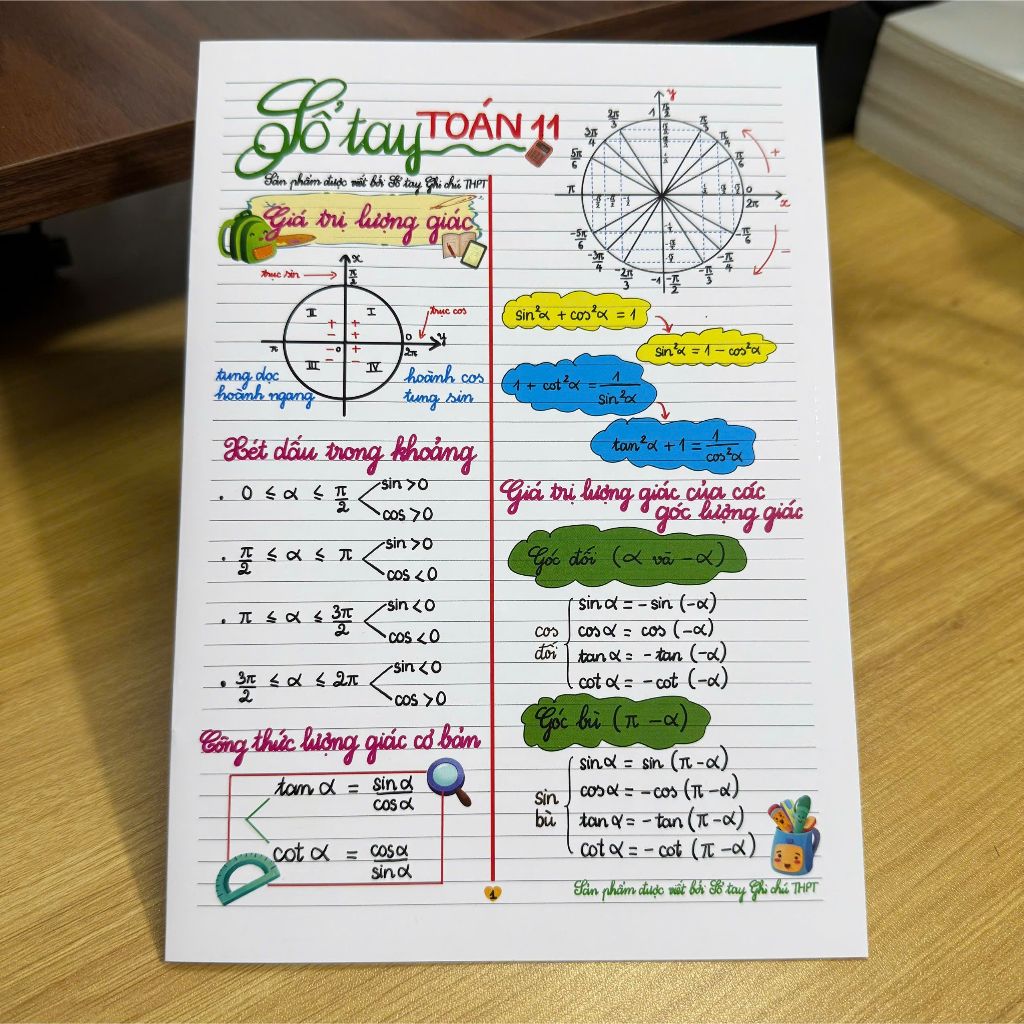 Sổ tay TOÁN 11
Sản phẩm được viết bởi Sổ tay Ghi chú THPT
Giá trị lượng giác
trục sin
x
π/2
II I
+ +
- +
trục cos
π - 0 + 0 y
2π
- -
III IV
tung dọc
hoành ngang
hoành cos
tung sin
Xét dấu trong khoảng
. 0 ≤ α ≤ π/2 sin > 0
cos > 0
. π/2 ≤ α ≤ π sin > 0
cos < 0
. π ≤ α ≤ 3π/2 sin < 0
cos < 0
. 3π/2 ≤ α ≤ 2π sin < 0
cos > 0
Công thức lượng giác cơ bản
tan α = sin α / cos α
cot α = cos α / sin α
y
1 π/2
2π/3 π/3
3π/4 π/4
5π/6 π/6
+
π 0 x
2π
-5π/6 -π/6
-3π/4 -π/4
-2π/3 -π/3
-1 -π/2
-
sin²α + cos²α = 1
sin²α = 1 - cos²α
1 + cot²α = 1/sin²α
tan²α + 1 = 1/cos²α
Giá trị lượng giác của các
góc lượng giác
Góc đối (α và -α)
cos đối
sin α = - sin (-α)
cos α = cos (-α)
tan α = - tan (-α)
cot α = - cot (-α)
Góc bù (π - α)
sin bù
sin α = sin (π - α)
cos α = - cos (π - α)
tan α = - tan (π - α)
cot α = - cot (π - α)
Sản phẩm được viết bởi Sổ tay Ghi chú THPT
1